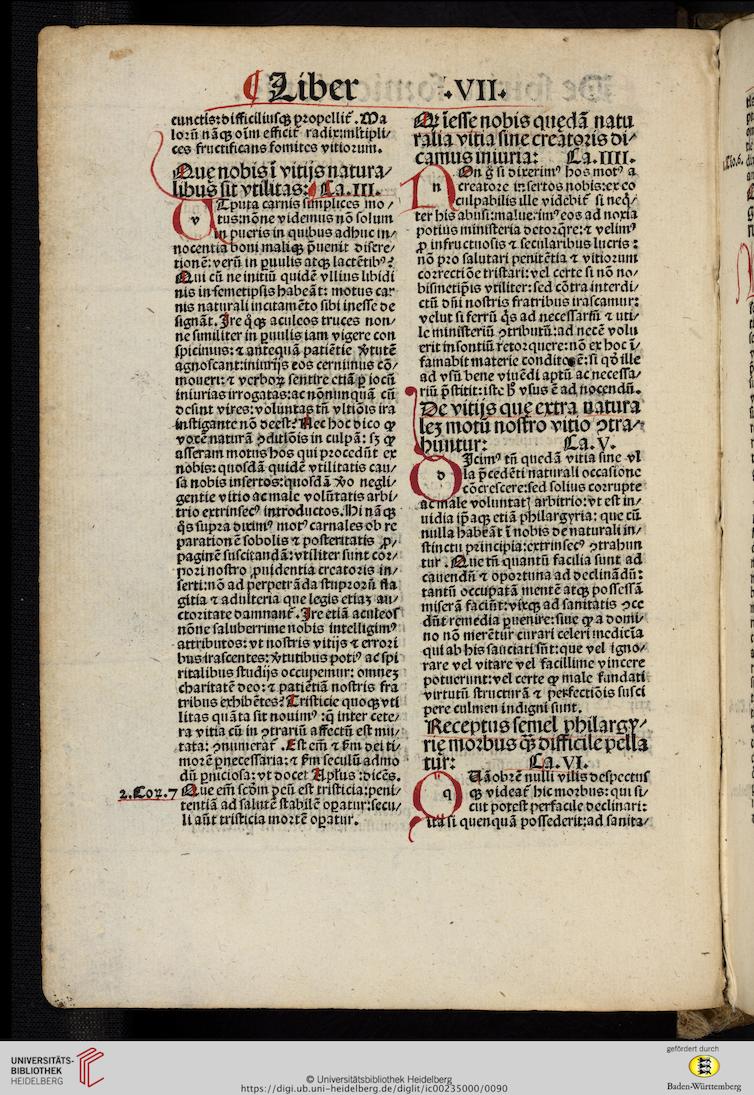 ¶ Liber .VII.
cunctis: difficiliusq̃ ꝓpellit̃. Ma
lorũ nãq̃ oĩm efficit̃ radix: ml̃tipli/
ces fructificans fomites vitiorum.
Quę nobis ĩ vitijs natura/
libus sit vtilitas: Ca.III.
VTputa carnis simplices mo/
tus: nõne videmus nõ solum
in pueris in quibus adhuc in/
nocentia boni maliq̃ p̃uenit discre/
tionẽ: verũ in ꝑuulis atq̃ lactẽtibꝰ?
Qui cũ ne initiũ quidẽ vllius libidi
nis in semetipsis habeãt: motus car
nis naturali incitamẽto sibi inesse de
signãt. Ire q̃q̃ aculeos truces non/
ne similiter in ꝑuulis iam vigere con
spicimus: ⁊ anteq̃uã patiẽtie ṽtutẽ
agnoscant: iniurijs eos cernimus cõ/
moueri: ⁊ verboꝝ sentire etiã ꝑ iocũ
iniurias irrogatas: ac nõnunquã cũ
desint vires: voluntas tñ vltiõis ira
instigante nõ deest? Nec hoc dico ꝙ
votẽ naturã ꝯditiõis in culpã: sꝫ ꝙ
asseram motus hos qui procedũt ex
nobis: quosdã quidẽ vtilitatis cau/
sa nobis insertos: quosdã ṽo negli/
gentie vitio ac male volũtatis arbi/
trio extrinsecꝰ introductos. Hi nãq̃
q̃s supra diximꝰ motꝰ carnales ob re
parationẽ sobolis ⁊ posteritatis ꝓ/
paginẽ suscitandã: vtiliter sunt cor/
pori nostro ꝓuidentia creatoris in/
serti: nõ ad perpetrãda stuprorũ fla
gitia ⁊ adulteria que legis etiaz au/
ctoritate damnant̃. Ire etiã aculeos
nõne saluberrime nobis intelligimꝰ
attributos: vt nostris vitijs ⁊ errori
bus irascentes: ṽtutibus potiꝰ ac spi
ritalibus studijs occupemur: omnez
charitatẽ deo: ⁊ patiẽtiã nostris fra
tribus exhibẽtes? Tristicie quoq̃ vti
litas quãta sit nouimꝰ: q̃ inter cete/
ra vitia cũ in ꝯtrariũ affectũ est mu/
tata: ꝯnumerat̃. Est em̃ ⁊ ẜm dei ti/
morẽ ꝑnecessaria: ⁊ ẜm seculũ admo
dũ ꝑniciosa: vt docet Apl̃us: dicẽs.
2.Cor.7
Que em̃ scd̃m deũ est tristicia: peni/
tentiã ad salutẽ stabilẽ oꝑatur: secu/
li aũt tristicia mortẽ oꝑatur.
Qr̃ iesse nobis quedã natu
ralia vitia sine creatoris di/
camus iniuria: Ca.IIII.
NOn g̃ si dixerimꝰ hos motꝰ a
creatore insertos nobis: ex eo
culpabilis ille videbit̃ si neq̃/
ter his abusi: maluerimꝰ eos ad noxia
potius ministeria detorq̃re: ⁊ velimꝰ
ꝓ infructuosis ⁊ secularibus lucris:
nõ pro salutari penitẽtia ⁊ vitiorum
correctiõe tristari: vel certe si nõ no/
bismetip̃is vtiliter: sed cõtra interdi/
ctũ dñi nostris fratribus irascamur:
velut si ferrũ q̃s ad necessariũ ⁊ uti/
le ministeriũ ꝯtributũ: ad necẽ volu
erit insontiũ retorquere: nõ ex hoc ĩ/
famabit materie conditorẽ: si qd̃ ille
ad vsũ bene viuẽdi aptũ ac necessa/
riũ p̃stitit: iste h̃ vsus ẽ ad nocendũ.
De vitijs que extra natura
lez motũ nostro vitio ꝯtra/
huntur: Ca.V.
DIcimꝰ tñ quedã vitia sine vl
la p̃cedẽti naturali occasione
cõcrescere: sed solius corrupte
ac male voluntatꝭ arbitrio: vt est in/
uidia ip̃aq̃ etiã philargyria: que cũ
nulla habeãt ĩ nobis de naturali in/
stinctu principia: extrinsecꝰ ꝯtrahun
tur. Que tñ quantũ facilia sunt ad
cauendũ ⁊ oportuna ad declinãdũ:
tantũ occupatã mentẽ atq̃ possessã
miserã faciũt: vixq̃ ad sanitatis ꝯce
dũt remedia puenire: siue ꝙ a domi/
no nõ merẽtur curari celeri medicĩa
qui ab his sauciati sũt: que vel igno/
rare vel vitare vel facillime vincere
potuerunt: vel certe ꝙ male fundati
virtutũ structurã ⁊ perfectiõis susci
pere culmen indigni sunt.
Receptus semel philargy/
rię morbus q̃ꝫ difficile pella
tur: Ca.VI.
QUãobrẽ nulli vilis despectus
q̃ videat̃ hic morbus: qui si/
cut potest perfacile declinari:
ita si quenquã possederit: ad sanita/
UNIVERSITÄTS-
BIBLIOTHEK
HEIDELBERG
© Universitätsbibliothek Heidelberg
https://digi.ub.uni-heidelberg.de/diglit/ic00235000/0090
gefördert durch
Baden-Württemberg